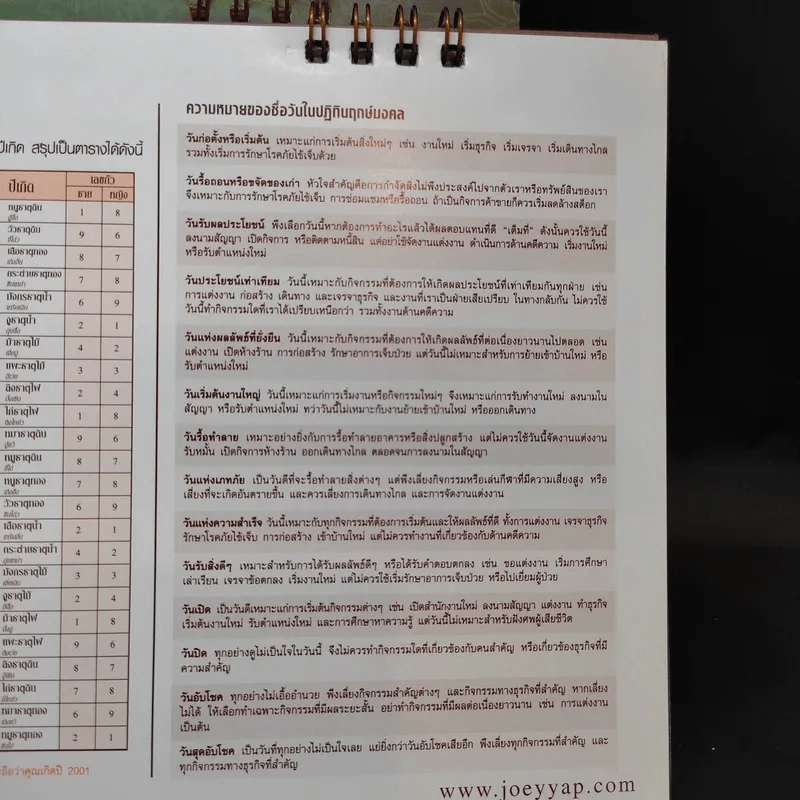 ปีเกิด สรุปเป็นตารางได้ดังนี้
ปีเกิด
เลขกัว
ชาย หญิง
หนูธาตุดิน 1 8
วัวธาตุดิน 9 6
เสือธาตุทอง 8 7
กระต่ายธาตุทอง 7 8
มังกรธาตุน้ำ 6 9
งูธาตุน้ำ 2 1
ม้าธาตุไม้ 4 2
แพะธาตุไม้ 3 3
ลิงธาตุไฟ 2 4
ไก่ธาตุไฟ 1 8
หมาธาตุดิน 9 6
หมูธาตุดิน 8 7
หนูธาตุทอง 7 8
วัวธาตุทอง 6 9
เสือธาตุน้ำ 2 1
กระต่ายธาตุน้ำ 4 2
มังกรธาตุไม้ 3 3
งูธาตุไม้ 2 4
ม้าธาตุไฟ 1 8
แพะธาตุไฟ 9 6
ลิงธาตุดิน 8 7
ไก่ธาตุดิน 7 8
หมาธาตุทอง 6 9
หมูธาตุทอง 2 1
ถือว่าคุณเกิดปี 2001
ความหมายของชื่อวันในปฏิทินฤกษ์มงคล
วันก่อตั้งหรือเริ่มต้น เหมาะแก่การเริ่มต้นสิ่งใหม่ๆ เช่น งานใหม่ เริ่มธุรกิจ เริ่มเจรจา เริ่มเดินทางไกล
รวมทั้งเริ่มการรักษาโรคภัยไข้เจ็บด้วย
วันรื้อถอนหรือขจัดของเก่า หัวใจสำคัญคือการกำจัดสิ่งไม่พึงประสงค์ไปจากตัวเราหรือทรัพย์สินของเรา
จึงเหมาะกับการรักษาโรคภัยไข้เจ็บ การซ่อมแซมหรือรื้อถอน ถ้าเป็นกิจการค้าขายก็ควรเริ่มลดล้างสต็อก
วันรับผลประโยชน์ พึงเลือกวันนี้หากต้องการทำอะไรแล้วได้ผลตอบแทนที่ดี "เต็มที่" ดังนั้นควรใช้วันนี้
ลงนามสัญญา เปิดกิจการ หรือติดตามหนี้สิน แต่อย่าใช้จัดงานแต่งงาน ดำเนินการด้านคดีความ เริ่มงานใหม่
หรือรับตำแหน่งใหม่
วันประโยชน์เท่าเทียม วันนี้เหมาะกับกิจกรรมที่ต้องการให้เกิดผลประโยชน์ที่เท่าเทียมกันทุกฝ่าย เช่น
การแต่งงาน ก่อสร้าง เดินทาง และเจรจาธุรกิจ และงานที่เราเป็นฝ่ายเสียเปรียบ ในทางกลับกัน ไม่ควรใช้
วันนี้ทำกิจกรรมใดที่เราได้เปรียบเหนือกว่า รวมทั้งงานด้านคดีความ
วันแห่งผลลัพธ์ที่ยั่งยืน วันนี้เหมาะกับกิจกรรมที่ต้องการให้เกิดผลลัพธ์ที่ต่อเนื่องยาวนานไปตลอด เช่น
แต่งงาน เปิดห้างร้าน การก่อสร้าง รักษาอาการเจ็บป่วย แต่วันนี้ไม่เหมาะสำหรับการย้ายเข้าบ้านใหม่ หรือ
รับตำแหน่งใหม่
วันเริ่มต้นงานใหญ่ วันนี้เหมาะแก่การเริ่มงานหรือกิจกรรมใหม่ๆ จึงเหมาะแก่การรับทำงานใหม่ ลงนามใน
สัญญา หรือรับตำแหน่งใหม่ ทว่าวันนี้ไม่เหมาะกับงานย้ายเข้าบ้านใหม่ หรือออกเดินทาง
วันรื้อทำลาย เหมาะอย่างยิ่งกับการรื้อทำลายอาคารหรือสิ่งปลูกสร้าง แต่ไม่ควรใช้วันนี้จัดงานแต่งงาน
รับหมั้น เปิดกิจการห้างร้าน ออกเดินทางไกล ตลอดจนการลงนามในสัญญา
วันแห่งเภทภัย เป็นวันดีที่จะรื้อทำลายสิ่งต่างๆ แต่พึงเลี่ยงกิจกรรมหรือเล่นกีฬาที่มีความเสี่ยงสูง หรือ
เสี่ยงที่จะเกิดอันตรายขึ้น และควรเลี่ยงการเดินทางไกล และการจัดงานแต่งงาน
วันแห่งความสำเร็จ วันนี้เหมาะกับทุกกิจกรรมที่ต้องการเริ่มต้นและให้ผลลัพธ์ที่ดี ทั้งการแต่งงาน เจรจาธุรกิจ
รักษาโรคภัยไข้เจ็บ การก่อสร้าง เข้าบ้านใหม่ แต่ไม่ควรทำงานที่เกี่ยวข้องกับด้านคดีความ
วันรับสิ่งดีๆ เหมาะสำหรับการได้รับผลลัพธ์ดีๆ หรือได้รับคำตอบตกลง เช่น ขอแต่งงาน เริ่มการศึกษา
เล่าเรียน เจรจาข้อตกลง เริ่มงานใหม่ แต่ไม่ควรใช้เริ่มรักษาอาการเจ็บป่วย หรือไปเยี่ยมผู้ป่วย
วันเปิด เป็นวันดีเหมาะแก่การเริ่มต้นกิจกรรมต่างๆ เช่น เปิดสำนักงานใหม่ ลงนามสัญญา แต่งงาน ทำธุรกิจ
เริ่มต้นงานใหม่ รับตำแหน่งใหม่ และการศึกษาหาความรู้ แต่วันนี้ไม่เหมาะสำหรับฝังศพผู้เสียชีวิต
วันปิด ทุกอย่างดูไม่เป็นใจในวันนี้ จึงไม่ควรทำกิจกรรมใดที่เกี่ยวข้องกับคนสำคัญ หรือเกี่ยวข้องธุรกิจที่มี
ความสำคัญ
วันอับโชค ทุกอย่างไม่เอื้ออำนวย พึงเลี่ยงกิจกรรมสำคัญต่างๆ และกิจกรรมทางธุรกิจที่สำคัญ หากเลี่ยง
ไม่ได้ ให้เลือกทำเฉพาะกิจกรรมที่มีผลระยะสั้น อย่าทำกิจกรรมที่มีผลต่อเนื่องยาวนาน เช่น การแต่งงาน
เป็นต้น
วันสุดอับโชค เป็นวันที่ทุกอย่างไม่เป็นใจเลย แย่ยิ่งกว่าวันอับโชคเสียอีก พึงเลี่ยงทุกกิจกรรมที่สำคัญ และ
ทุกกิจกรรมทางธุรกิจที่สำคัญ
www.joeyyap.com